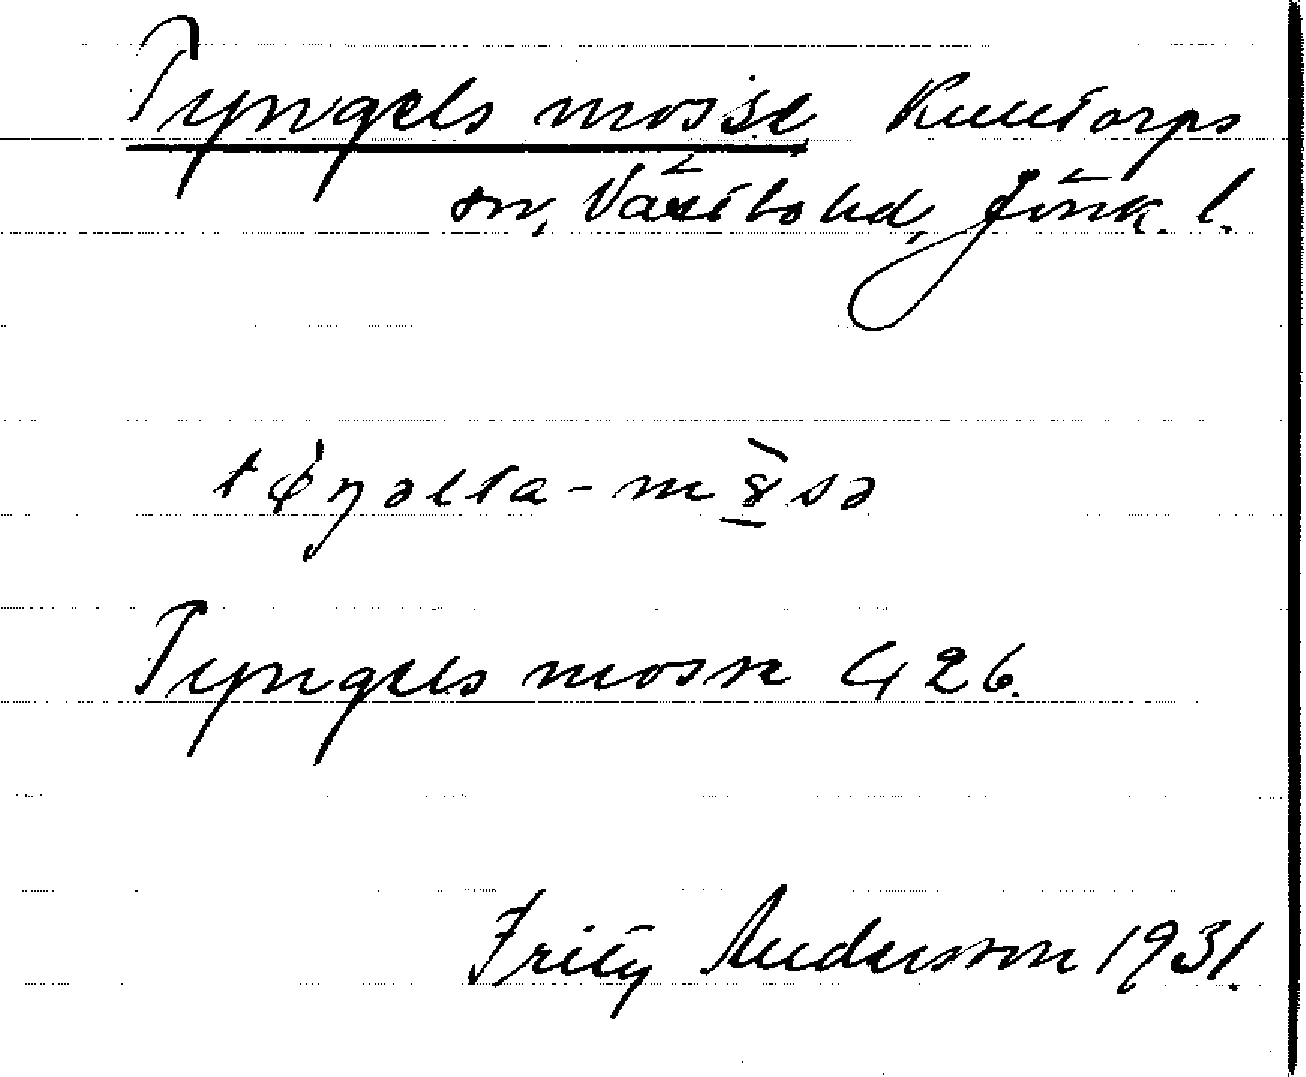 Tyngels mosse Kulltorps
sn, Västbo hd, Jönk. l.
tǿŋəlsa-m sə
Tyngels mosse G 26.
Fritz Andersson 1931.